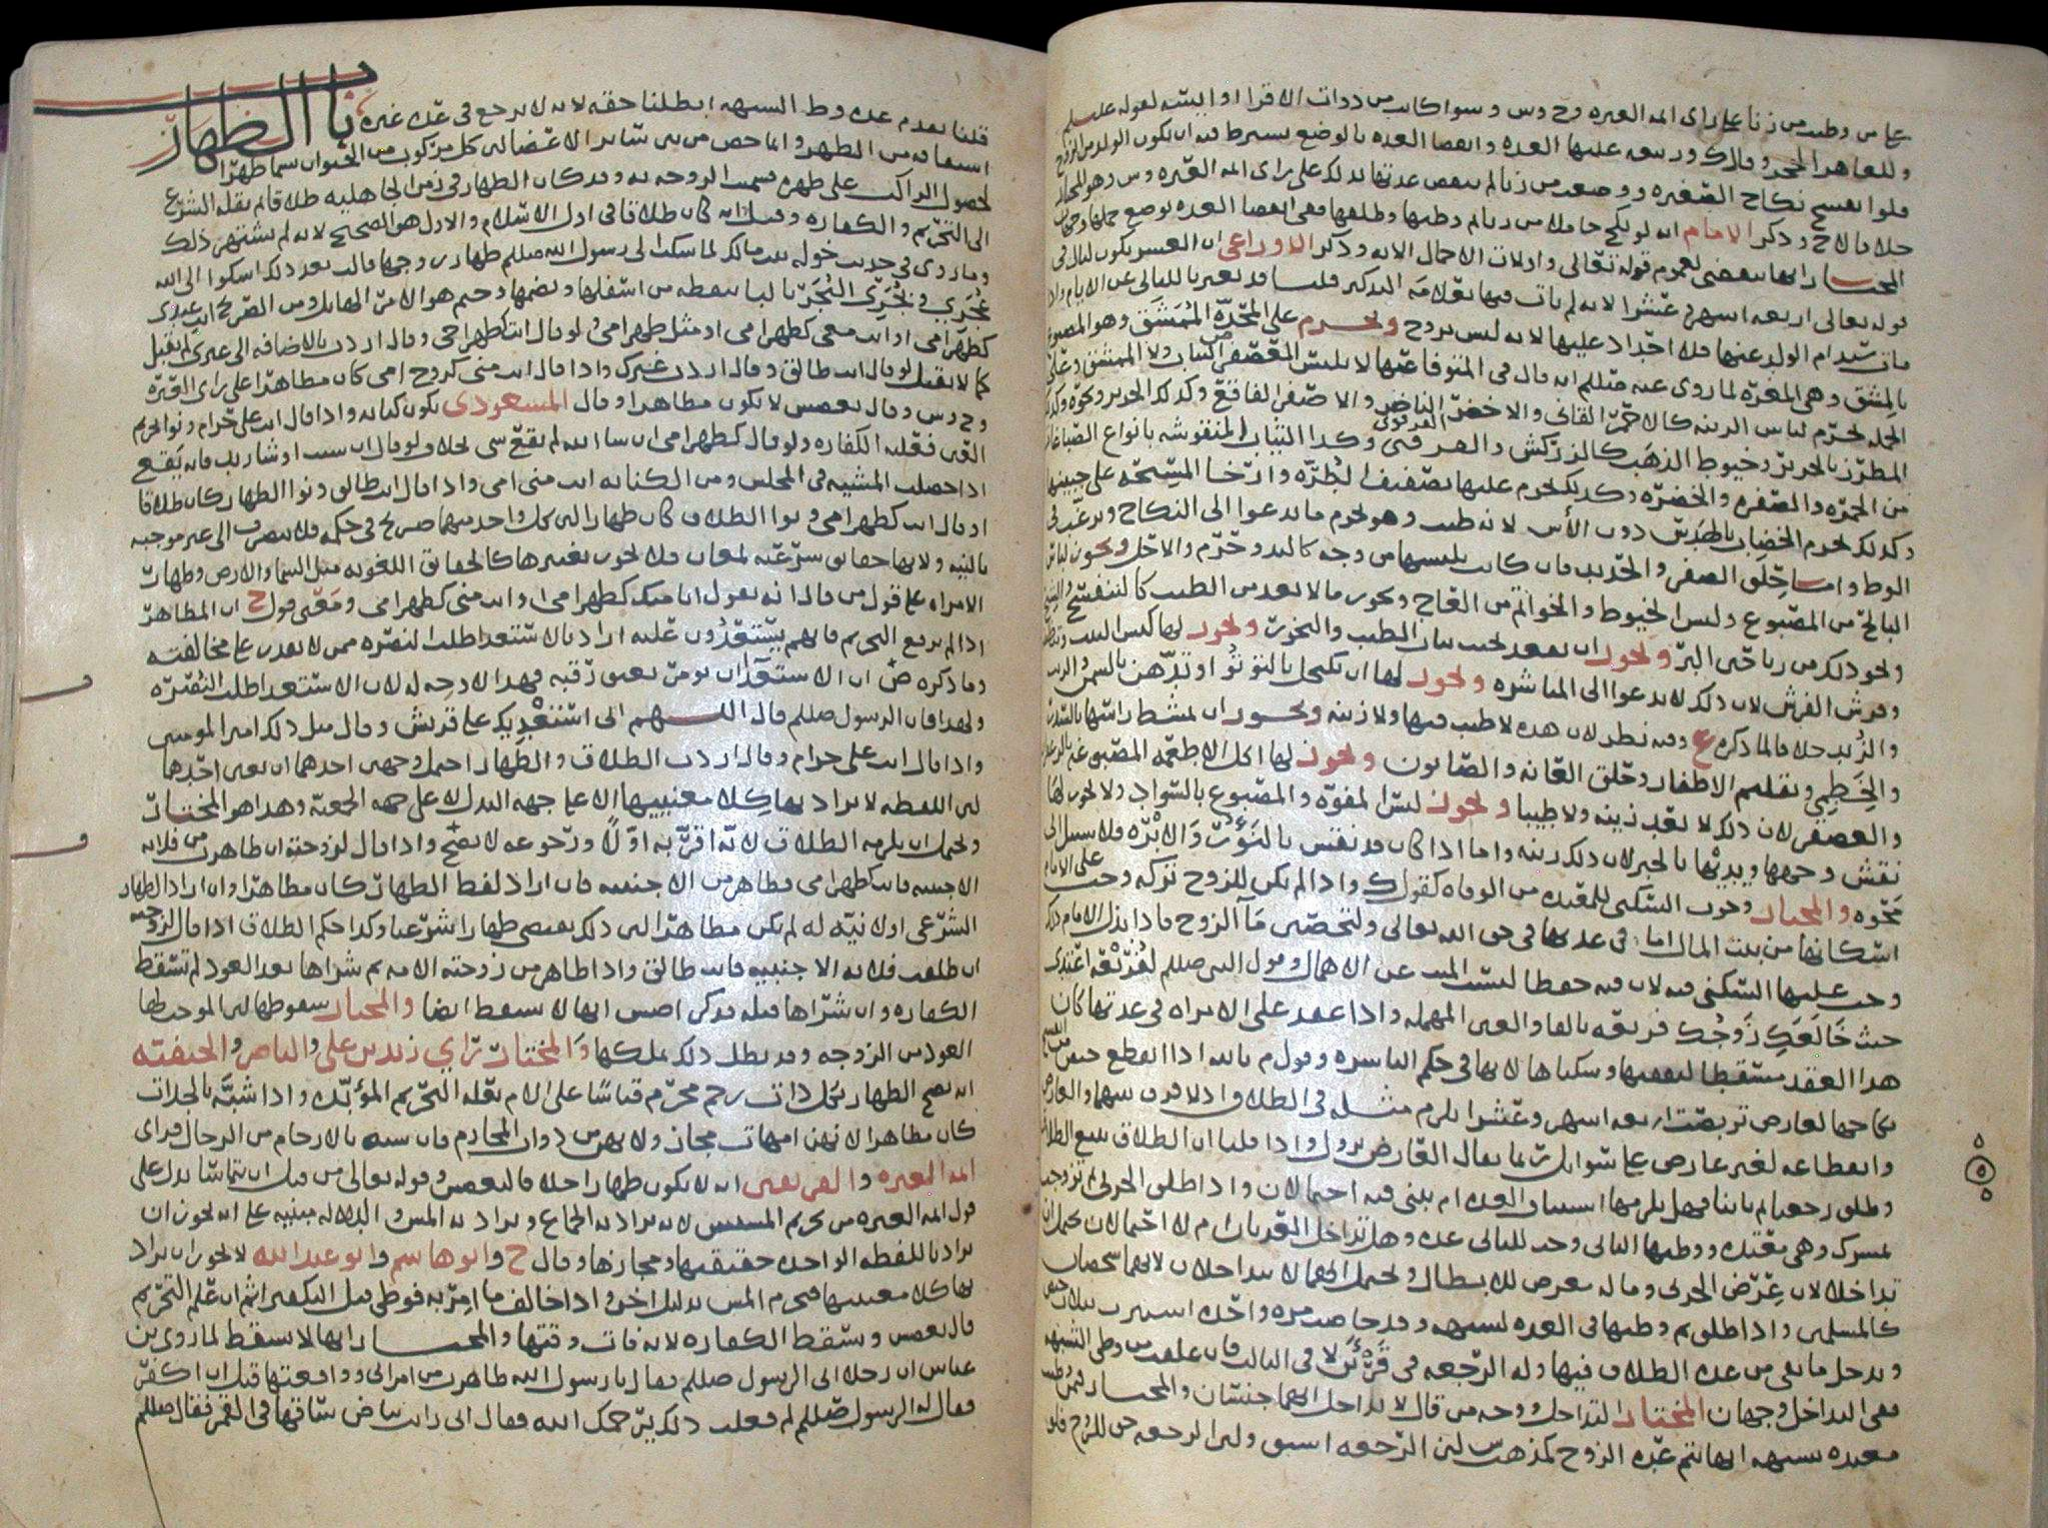 على من وطئت من زنا على راى ائمه العتره وح وس وسوا كانت من ذوات الاقرا او اليئسه لقوله عليلم
وللعاهر الحجر وقال ك ور يجب عليها العده وانقضا العده بالوضع يشترط فيه ان يكون الولد من الزوج
فلو انفسخ نكاح الصغيره ووضعت من زنا لم تنقض عدتها بذلك على راى ائمه العتره وس وهو المختار
خلافا لا ح وذكر الامام انه لو نكح حاملا من زنا ثم وطيها وطلقها ففى انقضا العده بوضع حملها وجهان
المختار انها تنقضى لعموم قوله تعالى واولات الاحمال الايه وذكر الاوزاعى ان العشر يكون ليال فى
قوله تعالى اربعه اشهر وعشرا لانه لم يات فيها بعلامه التذكير قلنا قد يعبر بالليالى عن الايام واذا
مات سيد ام الولد عنها فلا احداد عليها لانه ليس بزوج ويحرم على المحدّه المُمَشَّق وهو المصبوغ
بالمِشق وهى المغره لما روى عنه صلللم انه قال فى المتوفا عنها لا تلبس المعصفر من الثياب ولا الممشق وعلى
الجمله يحرم لباس الزينه كالاحمر القانى والاخضر الناضر والاصفر الفاقع وكذلك الحرير ونحوه وكذلك
المطرز بالحرير وخيوط الذهب كالزركش والفرقبى وكذا الثياب المنقوشه بانواع الصباغات
من الحمره والصفره والخضره وكذلك يحرم عليها تصفيف الطره وارخا المسبحه على جبينها
وكذلك يحرم الخضاب باليدين دون الرأس لانه طيب وهو يحرم ما يدعوا الى النكاح ويرغب فى
الوطا واما حِلَق الصفر والحديد فان كانت يلبسها من وجه كاليد وحرم والا حل ويجوز لباس
البالى من المصبوغ ولبس الخيوط والخواتم من العاج ونحوه ما لا يعد من الطيب كالبنفسج والنرجس
ونحو ذلك من رياحين البر ويجوز ان تقعد تحت ثياب المطيب والبخور ويجوز لها كنس البيت
وفرش الفرش لان ذلك لا يدعوا الى المباشره ويجوز لها ان تكتحل بالتوتُوْ او تدّهن بالسمن والزيت
والزُبد خلافا لما ذكره ع وفيه نظر لان هذه لا طيب فيها ولا زينه ويجوز ان تمشط راسها بالسدر
والخَطِمي وتقليم الاظفار وحلق العانه والصابون ويجوز لها اكل الاطعمه المصبوغه بالزعفران
والعصفر لان ذلك لا يعد زينه ولا طيبا ويجوز لبس المفوّه والمصبوغ بالسواد ولا يجوز لها
نقش وجهها ويديها بالحبر لان ذلك زينه واما اذا كان قد نقش بالنوؤر والابره فلا سبيل الى
محوه والمختار وجوب السكنى للمعتده من الوفاه كقول ك واذا لم يكن للزوج تركه وجب على الامام
اسكانها من بيت المال اما فى عدتها فى حق الله تعالى ولتحصين مآ الزوج فاذا بذل الامام ذلك
وجب عليها السكنى فيه لان فيه حفظا لنسب الميت عن الاهمال وقول النبى صلللم لفُرَيْعَه اعتدى
حيث خَالعَكِ زوجُك فريعه بالفا والعين المهمله واذا عقد على الامراه فى عدتها كان
هذا العقد مسقطا لنفقتها وسكناها لانها فى حكم الناشزه وقول م بالله اذا انقطع حيض
نكاحها لعارض تربصت اربعه اشهر وعشرا يلزم مثله فى الطلاق اذ لا فرق بينهما والعارض
وانقطاعه لغير عارض على سوا بل ربما يقال العارض يزول واذا قلنا ان الطلاق يتبع الطلاق
وطلق رجعيا ثم باينا فهل يلزمها استيناف العده ام تبنى فيه احتمالان واذا طلق الحربى ثم تزوجت
بمشرك وهى معتده ووطيها الثانى وجب للثانى عده وهل تتداخل العدتان ام لا احتمالان يحتمل ان
تتداخلا لان عِرْض الحربى وماله معرض للابطال ويحتمل انهما لا يتداخلان لانهما شخصان
كالمسلمين واذا طلق ثم وطيها فى العده لشبهه وقد حاضت مره واحده استبرت بثلاث حيض
ويدخل ما بقى من عده الطلاق فيها وله الرجعه فى قَرْئَيْن لا فى الثالث فان علقت من وطى الشبهه
ففى التداخل وجهان المختار التداخل ووجه من قال لا يتداخل انهما جنسان والمختار فيمن وطيت
معتده بشبهه انها تتم عده الزوج كمذهب س لان الزوجه اسبق ولان الرجعه حق للزوج فلو
قلنا بعدم عده وط الشبهه ابطلنا حقه لانه لا يرجع فى عده غيره
باب الظهار
اشتقاقه من الظهر وانما خص من بين سائر الاعضا لان كل مركوب من الحيوان سما ظهرا
لحصول الراكب على ظهره فسميت الزوجه به وقد كان الظهار فى زمن الجاهليه طلاقا ثم نقله الشرع
الى التحريم والكفاره وقيل انه كان طلاقا فى اول الاسلام والاول هو الصحيح لانه لم يشتهر ذلك
وما روى فى حديث خوله بنت مالك لما شكت الى رسول الله صلللم ظهار زوجها قالت بعد ذلك اشكوا الى الله
عُجَري وبُجَرى البُجَر بالبا بنقطه من اسفلها وبضمها وجيم هو الامر الهايل ومن الصريح انتِ عندى
كظهر امى او انت معى كظهر امى او مثل ظهر امى ولو قال انت كظهر امى وقال اردت بالاضافه الى غيرى لم يقبل
كما لا يقبل لو قال انت طالق وقال اردت غيرك واذا قال انت منى كروح امى كان مظاهرا على راى العتره
وح وس وقال بعضهم لا يكون مظاهرا وقال المسعودى يكون كنايه واذا قال انت على حرام ونوا تحريم
العين فعليه الكفاره ولو قال كظهر امى ان شا الله لم يقع شى بخلاف لو قال ان شيت او شا زيد فانه يقع
اذا حصلت المشيه فى المجلس ومن الكنايه انت منى امى واذا قال انت طالق ونوا الظهار كان طلاقا
او قال انت كظهر امى ونوا الطلاق كان ظهارا لان كل واحد منهما صريح فى حكمه فلا ينصرف الى غير موجبه
بالنيه ولانها حقايق شرعيه لمعان فلا يجوز تغييرها كالحقايق اللغويه مثل السما والارض وظهار
الامراه على قول من قال انه تقول انا منك كظهر امى او انت منى كظهر امى ومعنى قول ح ان المظاهر
اذا لم يرفع التحريم فانهم يستعدُون عليه اراد بالاستعدا طلب النصره ممن لا يقدر على مخالفته
وما ذكره ص ان الاستعدا ان يومر بعتق رقبه فهذا لا وجه له لان الاستعدا طلب النصره
ولهذا فان الرسول صلللم قال اللهم انى استعديك على قريش وقال مثل ذلك امير المومنين
واذا قال انت على حرام وقال اردت الطلاق والظهار احتمل وجهين احدهما ان يعين احدهما
لان اللفظه لا يراد بها كِلا معنييها الا على جهه البدل لا على جهه الجمعيه وهذا هو المختار
ويحتمل ان يلزمه الطلاق لانه اقر به اولًا ورجوعه لا يصح واذا قال لزوجته ان ظاهرت من فلانه
الاجنبيه فانت كظهر امى فظاهر من الاجنبيه فان اراد لفظ الظهار كان مظاهرا وان اراد الظهار
الشرعى او لا نيه له لم يكن مظاهرا لان ذلك يقتضى ظهارا شرعيا وكذا حكم الطلاق اذا قال لزوجته
ان طلقت فلانه الاجنبيه فانت طالق واذا ظاهر من زوجته الامه ثم شراها بعد العود لم تسقط
الكفاره وان شراها قبله فذكر اصش انها لا تسقط ايضا والمختار سقوطها لان الموجب لها
العود من الزوجه وقد بطل ذلك بملكها والمختار راي زيد بن على والناصر والحنفيه
انه يصح الظهار بكل ذات رحم محرم قياسًا على الام بعله التحريم المؤبد واذا شبّه بالجدات
كان مظاهرا لانهن امهات مجاز ولانهن ذوات المحارم فان شبه بالارحام من الرجال فراى
ائمه العتره والفريقين انه لا يكون ظهارا خلافا لبعض وقوله تعالى من قبل ان يتماسا يدل على
قول ائمه العتره من تحريم المسيس لانه يراد به الجماع ويراد به المس والدلاله مبنيه على انه يجوز ان
يراد باللفظه الواحده حقيقتها ومجازها وقال ح وابو هاشم وابو عبد الله لا يجوز ان يراد
بها كلا معنييها فتحريم المس بدليل اخر واذا خالف ما امر به فوطى قبل التكفير اثم ان علم التحريم
قال بعضهم وتسقط الكفاره لانه فات وقتها والمختار انها لا تسقط لما روى بن
عباس ان رجلا اتى الرسول صلللم فقال يا رسول الله ظاهرت من امراتى وواقعتها قبل ان اكفر
فقال له الرسول صلللم لم فعلت ذلك يرحمك الله فقال انى رايت بياض ساقها فى القمر فقال صلللم